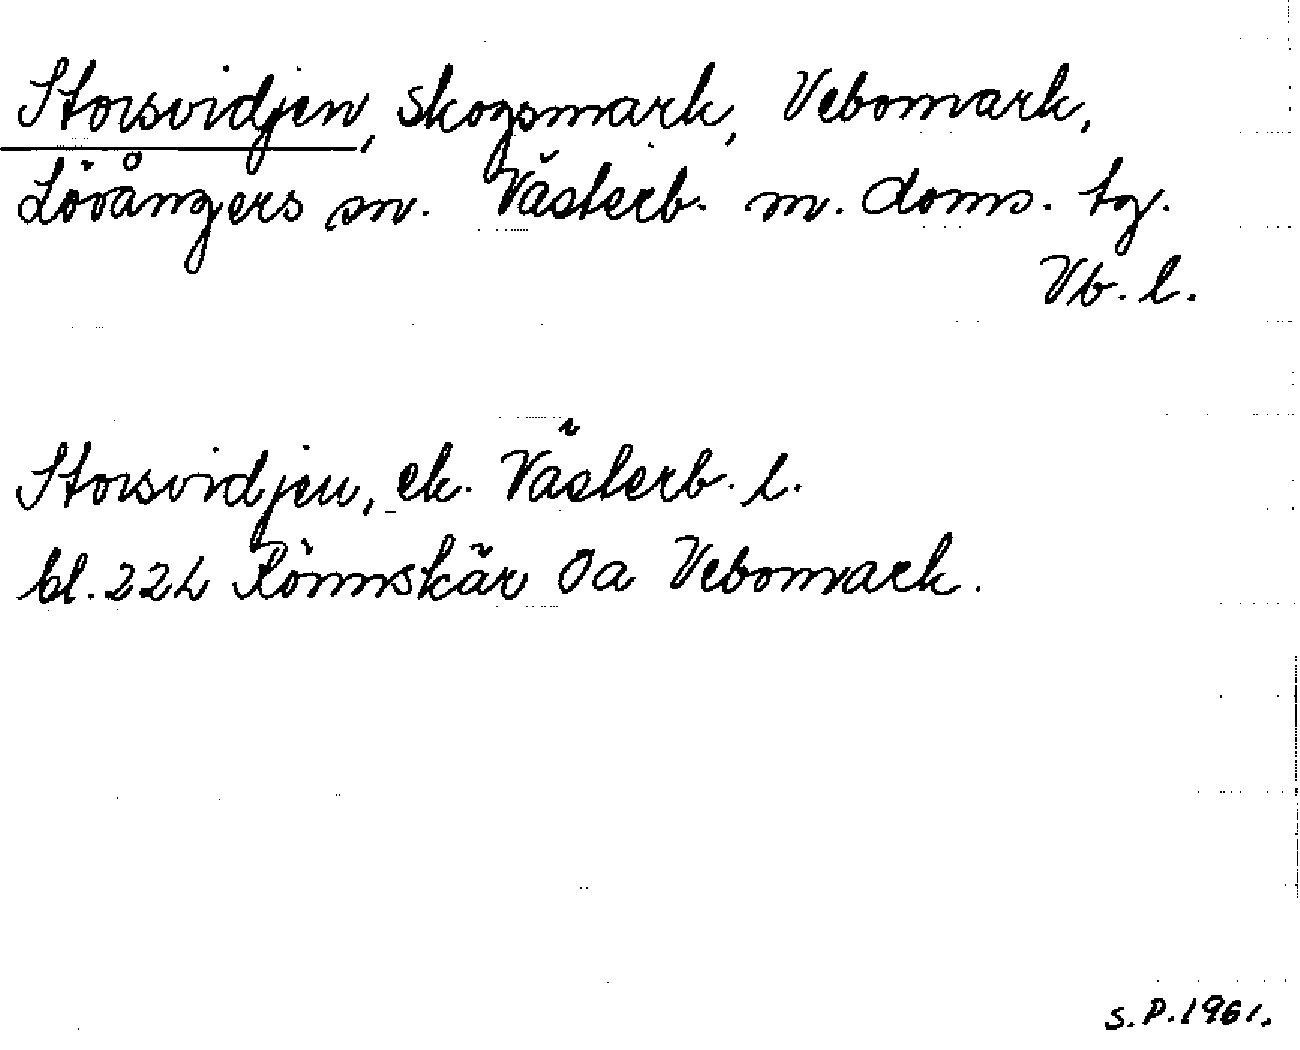 Storsvidjen, skogsmark, Vebomark,
Lövångers sn. Västerb. m. doms. tg.
Vb. l.
Storsvidjen, ek. Västerb. l.
bl. 22L Rönnskär Öa Vebomark.
S.P. 1961.